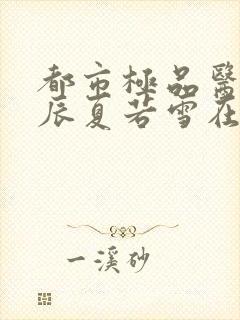 都市極品醫
辰夏若雪在
一溪砂